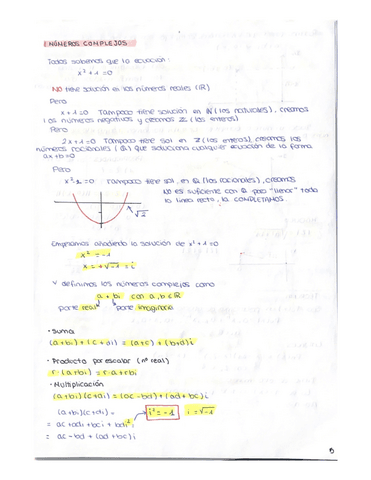 1 NÚMEROS COMPLEJOS
Todos sabemos que la ecuación:
x² + 1 = 0
NO tiene solución en los números reales (ℝ)
Pero
x + 1 = 0 Tampoco tiene solución en ℕ (los naturales), creamos
los números negativos y creamos ℤ (los enteros)
Pero
2x + 1 = 0 Tampoco tiene sol en ℤ (los enteros), creamos los
números racionales (ℚ) que soluciona cualquier ecuación de la forma
ax + b = 0
Pero
x² - 2 = 0 Tampoco tiene sol, en ℚ (los racionales), creamos
No es suficiente con ℚ para "llenar" toda
la línea recta, la COMPLETAMOS
√2
Empezamos añadiendo la solución de x² + 1 = 0
x² = -1
x = +√-1 = i
Y definimos los números complejos como
a + bi con a, b ∈ ℝ
parte real parte imaginaria
· Suma
(a + bi) + (c + di) = (a + c) + (b + d)i
· Producto por escalar (nº real)
r · (a + bi) = r · a + rbi
· Multiplicación
(a + bi)(c + di) = (ac - bd) + (ad + bc)i
(a + bi)(c + di) = i² = -1 i = √-1
= ac + adi + bci + bdi²
= ac - bd + (ad + bc)i